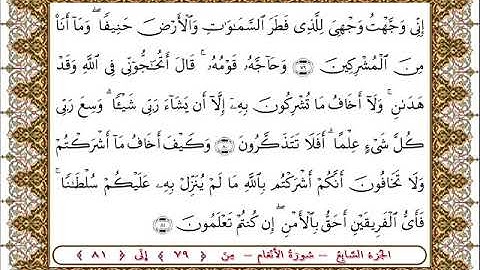 إِنِّى وَجَّهْتُ وَجْهِىَ لِلَّذِى فَطَرَ ٱلسَّمَـٰوَٰتِ وَٱلْأَرْضَ حَنِيفًا ۖ وَمَآ أَنَا۠
مِنَ ٱلْمُشْرِكِينَ ﴿٧٩﴾ وَحَآجَّهُۥ قَوْمُهُۥ ۚ قَالَ أَتُحَـٰٓجُّوٓنِّى فِى ٱللَّهِ وَقَدْ
هَدَىٰنِ ۚ وَلَآ أَخَافُ مَا تُشْرِكُونَ بِهِۦٓ إِلَّآ أَن يَشَآءَ رَبِّى شَيْـًٔا ۗ وَسِعَ رَبِّى
كُلَّ شَىْءٍ عِلْمًا ۗ أَفَلَا تَتَذَكَّرُونَ ﴿٨٠﴾ وَكَيْفَ أَخَافُ مَآ أَشْرَكْتُمْ
وَلَا تَخَافُونَ أَنَّكُمْ أَشْرَكْتُم بِٱللَّهِ مَا لَمْ يُنَزِّلْ بِهِۦ عَلَيْكُمْ سُلْطَـٰنًا ۚ
فَأَىُّ ٱلْفَرِيقَيْنِ أَحَقُّ بِٱلْأَمْنِ ۖ إِن كُنتُمْ تَعْلَمُونَ ﴿٨١﴾
الجزء السابع – سورة الأنعام – مِنْ ﴿ ٧٩ ﴾ إلى ﴿ ٨١ ﴾